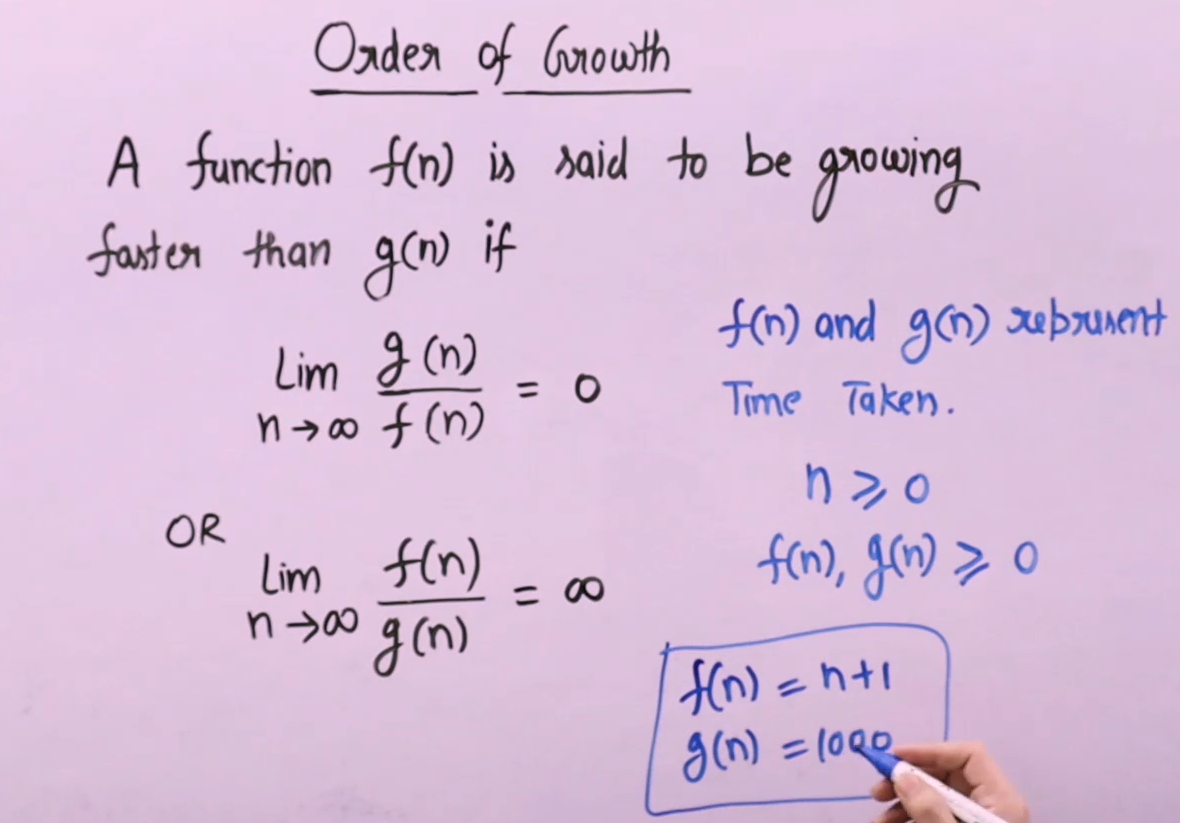 Order of Growth
A function f(n) is said to be growing
faster than g(n) if
Lim n→∞ g(n)/f(n) = 0
OR
Lim n→∞ f(n)/g(n) = ∞
f(n) and g(n) represent
Time Taken.
n ⩾ 0
f(n), g(n) ⩾ 0
f(n) = n+1
g(n) = 1000